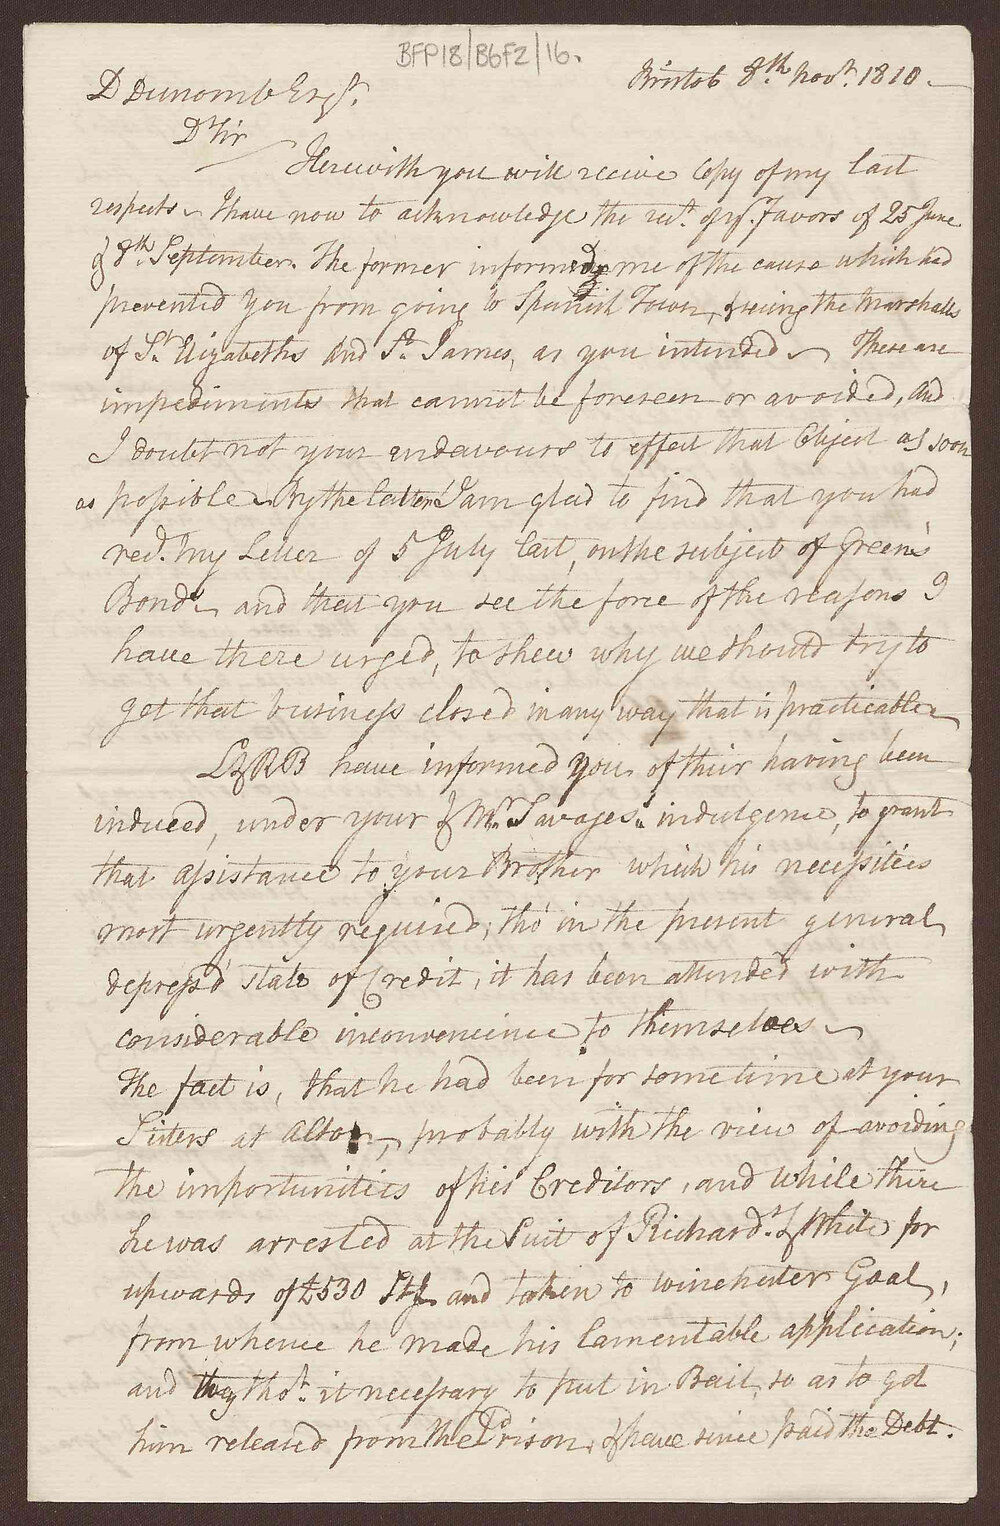 BFP18/B6F2/16.
Bristol 8th. Novr. 1810
D Duncomb Esqr.
Dr Sir
Herewith you will receive Copy of my last
respects I have now to acknowledge the rect. of yr. Favors of 25 June
& 8th. September. The former informed me of the cause which had
prevented you from going to Spanish Town, & seeing the Marshalls
of St. Elizabeths and St. James, as you intended These are
impediments that cannot be foreseen or avoided, and
I doubt not your endeavours to effect that Object as soon
as possible By the latter I am glad to find that you had
recd. my Letter of 5 July last, on the subject of Green's
Bonds and that you see the force of the reasons I
have there urged, to shew why we should try to
get that business closed in any way that is practicable
L & RB have informed you of their having been
induced, under your & Mr. Savages indulgence, to grant
that assistance to your Brother which his necessities
most urgently required; tho' in the present general
depress'd state of Credit, it has been attended with
considerable inconvenience to themselves
The fact is, that he had been for some time at your
Sisters at Alton, probably with the view of avoiding
the importunities of his Creditors, and while there
he was arrested at the Suit of Richard. & White for
upwards of £530 Stg and taken to Winchester Goal,
from whence he made his lamentable application;
and they thot. it necessary to put in Bail, so as to get
him released from the Prison, & have since paid the Debt.